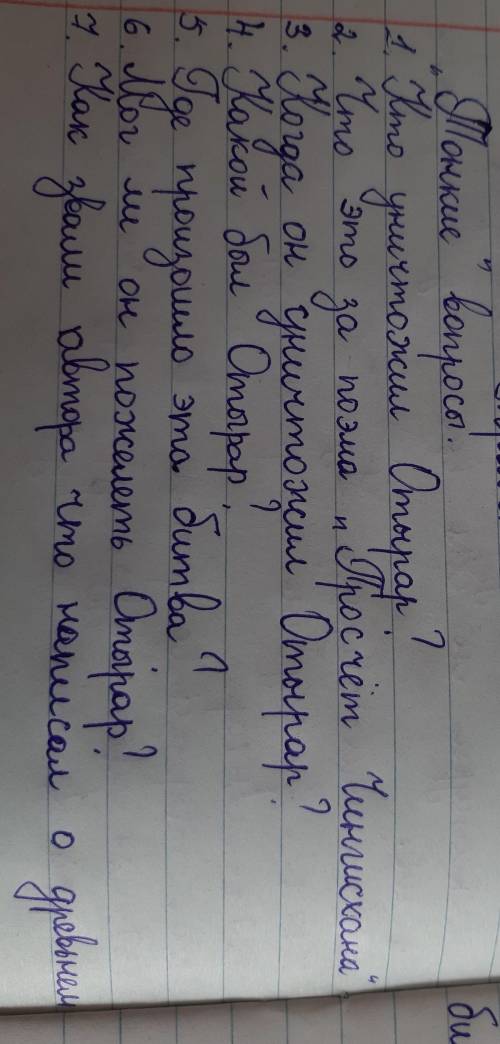 "Тонкие" вопросы.
1. Кто уничтожил Отырар?
2. Что это за поэма "Просчёт Чингисхана"?
3. Когда он уничтожил Отырар?
4. Какой был Отырар?
5. Где произошло эта битва?
6. Мог ли он пожелеть Отырар?
7. Как звали автора что написал о древнем
би